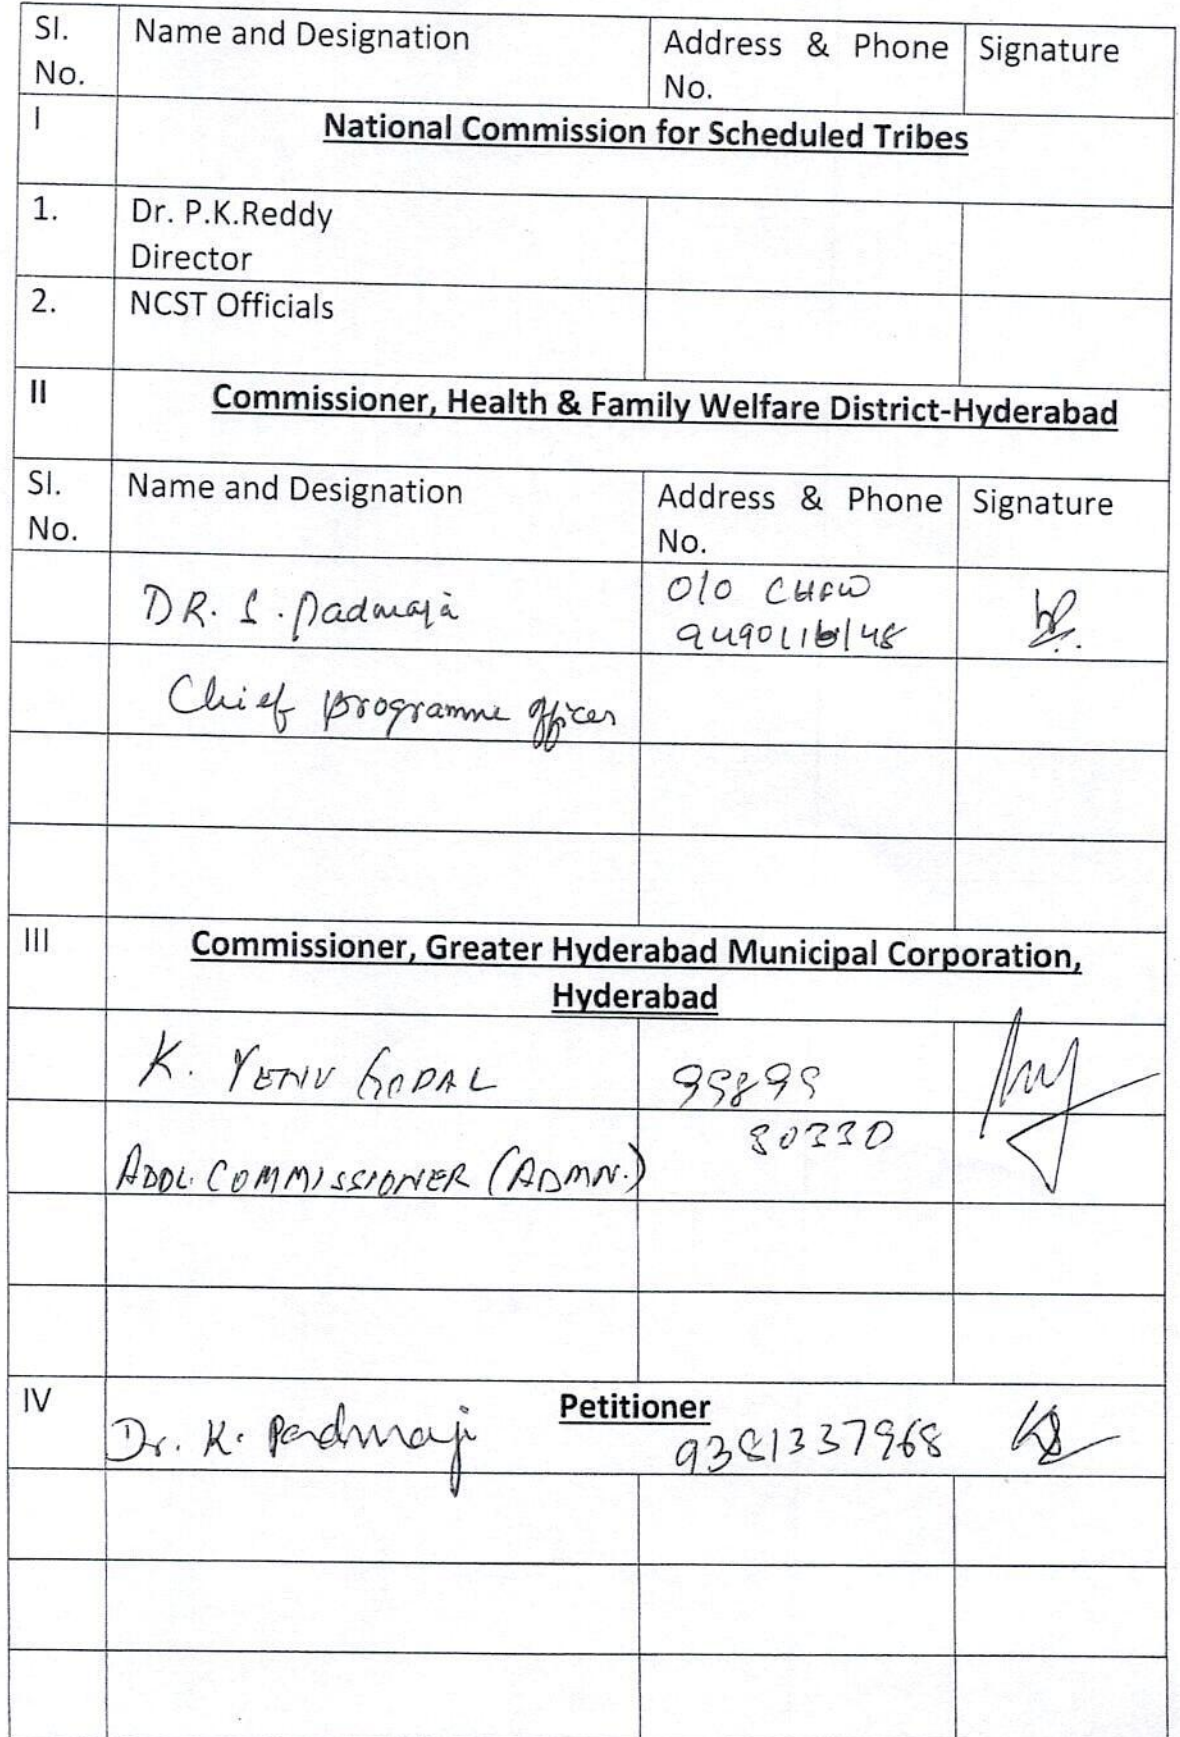 Sl. Name and Designation Address & Phone Signature
No. No.
I National Commission for Scheduled Tribes
1. Dr. P.K.Reddy
Director
2. NCST Officials
II Commissioner, Health & Family Welfare District-Hyderabad
Sl. Name and Designation Address & Phone Signature
No. No.
DR. S. Padmaja O/O CHFW
Chief programme officer
III Commissioner, Greater Hyderabad Municipal Corporation,
Hyderabad
K. VENU GOPAL 99899
80330
ADDL. COMMISSIONER (ADMN.)
IV Petitioner
Dr. K. Padmaji 9381337968